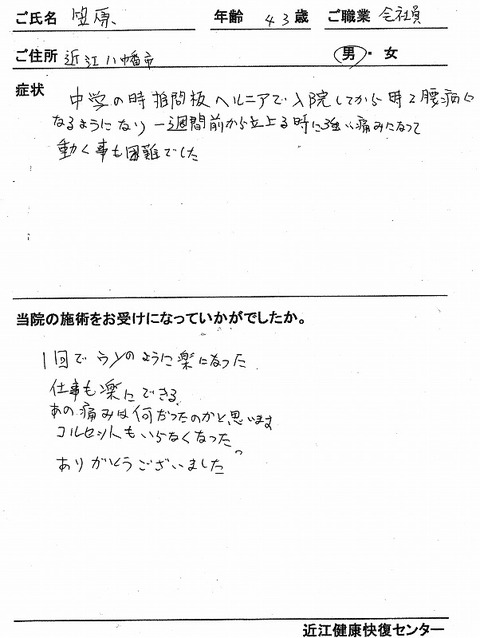 ご氏名 笠原 年齢 43歳 ご職業 会社員
ご住所 近江八幡市 男・女
症状 中学の時椎間板ヘルニアで入院してから時々腰痛に
なるようになり 一週間前から立上る時に強い痛みになって
動く事も困難でした
当院の施術をお受けになっていかがでしたか。
1回でウソのように楽になった
仕事も楽にできる
あの痛みは何だったのかと思います
コルセットもいらなくなった。
ありがとうございました
近江健康快復センター